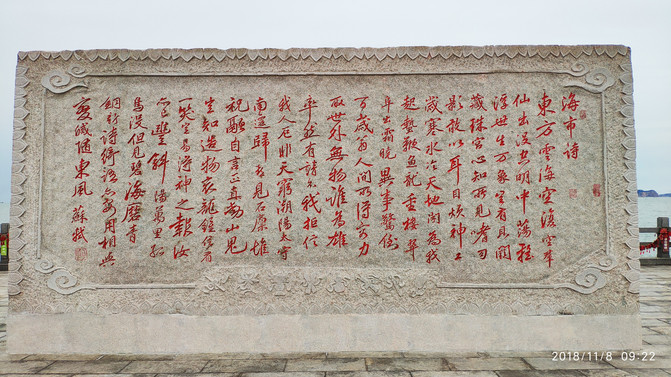 海市诗
東方雲海空復空羣
仙出没空明中蕩摇
浮世生万象豈有貝闕
藏珠宮心知所見皆幻
影敢以耳目煩神工
歲寒水冷天地閉為我
起蟄鞭魚龍重樓翠
阜出霜曉異事驚倒
百歲翁人間所得容力
取世外無物誰為雄
率然有請不我拒信
我人厄非天窮潮陽太守
南遷歸喜見石廩堆
祝融自言正直動山鬼
豈知造物哀龍鍾信眉
一笑豈易得神之報汝
亦已豐斜陽萬里孤
鳥没但見碧海磨青
銅新詩綺語亦安用相與
變滅隨東風 蘇軾
2018/11/8 09:22